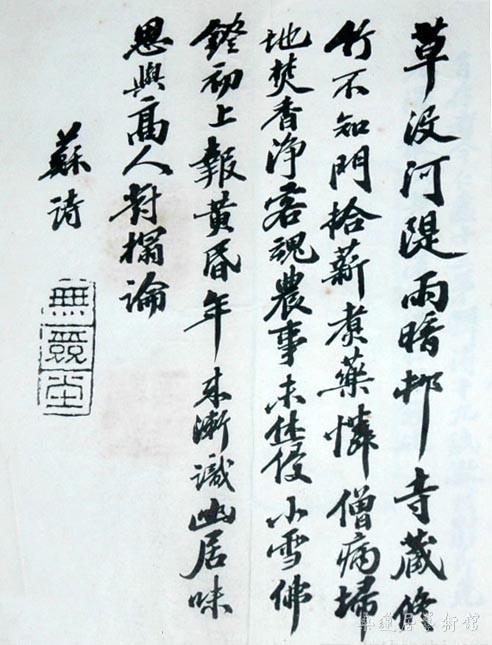 草没河隄雨暗邨寺藏脩
竹不知門拾薪煑藥憐僧病埽
地焚香淨客魂農事未休侵小雪佛
鐙初上報黃昏年來漸識幽居味
思與高人對榻論
蘇詩
無競堂